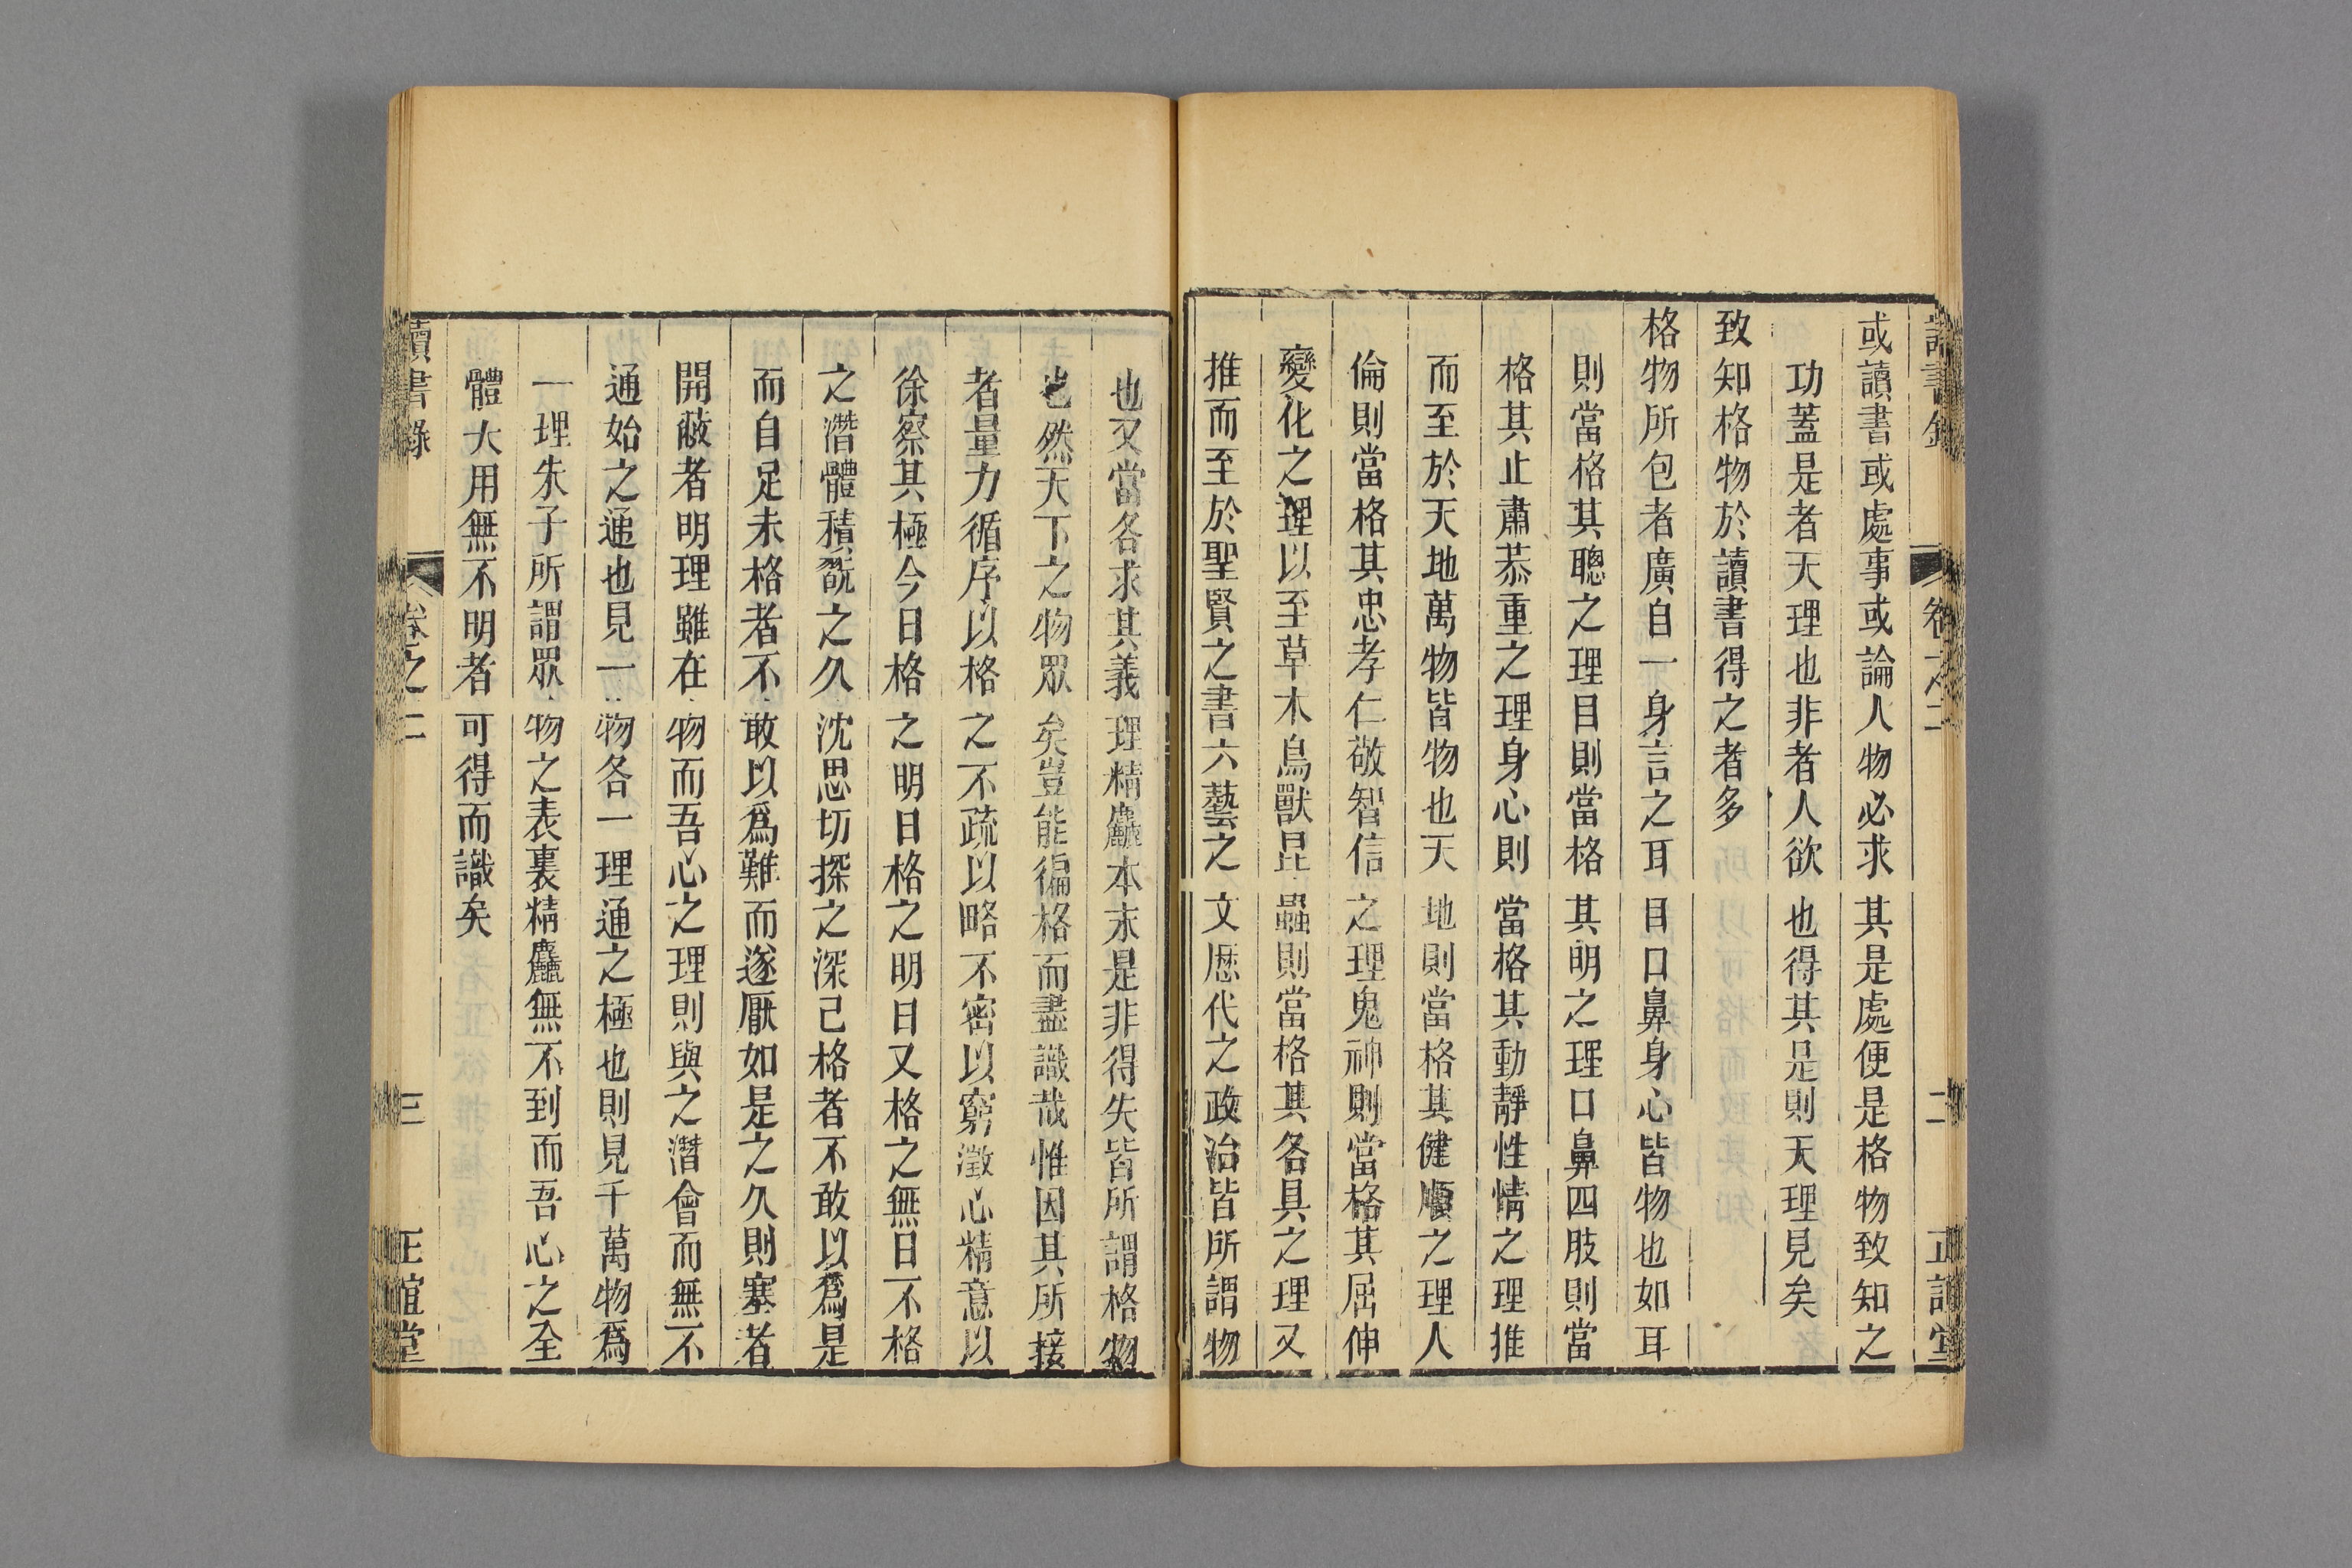 讀書錄 卷之二 二 正誼堂
或讀書或處事或論人物必求其是處便是格物致知之
功蓋是者天理也非者人欲也得其是則天理見矣
致知格物於讀書得之者多
格物所包者廣自一身言之耳目口鼻身心皆物也如耳
則當格其聰之理目則當格其明之理口鼻四肢則當
格其止肅恭重之理身心則當格其動靜性情之理推
而至於天地萬物皆物也天地則當格其健順之理人
倫則當格其忠孝仁敬智信之理鬼神則當格其屈伸
變化之理以至草木鳥獸昆蟲則當格其各具之理又
推而至於聖賢之書六藝之文歷代之政治皆所謂物
也又當各求其義理精麤本末是非得失皆所謂格物
也然天下之物眾矣豈能徧格而盡識哉惟因其所接
者量力循序以格之不疏以略不密以窮澂心精意以
徐察其極今日格之明日格之明日又格之無日不格
之潛體積翫之久沈思切探之深己格者不敢以爲是
而自足未格者不敢以爲難而遂厭如是之久則塞者
開蔽者明理雖在物而吾心之理則與之潛會而無不
通始之通也見一物各一理通之極也則見千萬物爲
一理朱子所謂眾物之表裏精麤無不到而吾心之全
體大用無不明者可得而識矣
讀書錄 卷之二 三 正誼堂